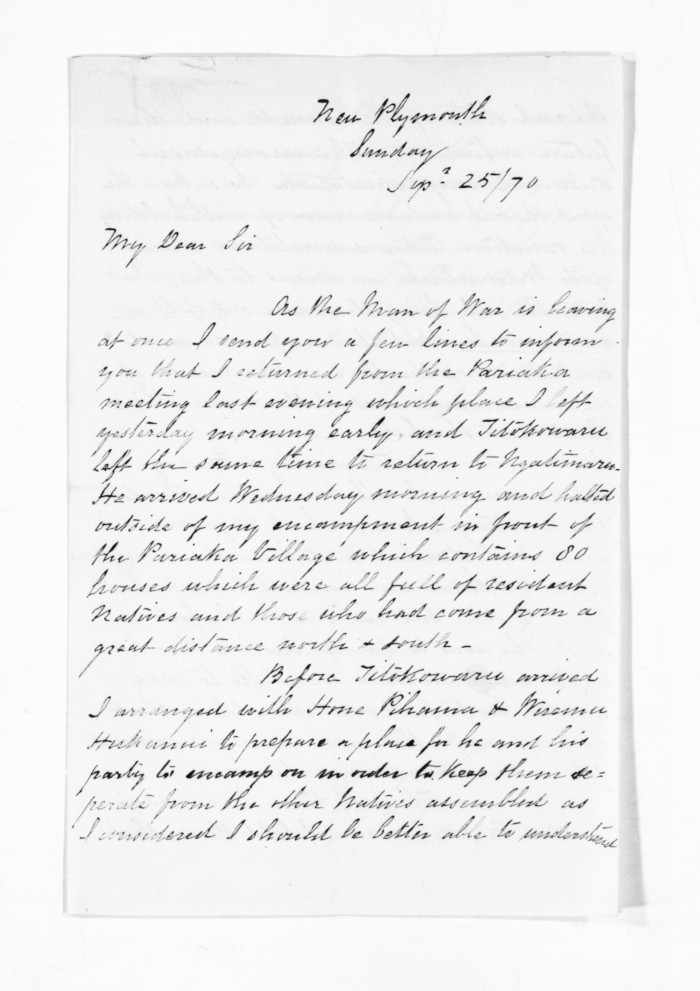 New Plymouth
Sunday
Sepr 25/70
My Dear Sir
As the Man of War is leaving
at once I send you a few lines to inform
you that I returned from the Pariaka
meeting last evening which place I left
yesterday morning early, and Titokowaru
left the same time to return to Ngatimaru-
He arrived Wednesday morning and halted
outside of my encampment in front of
the Pariaka Village which contains 80
houses which were all full of resident
Natives and those who had come from a
great distance north & south-
Before Titokowaru arrived
I arranged with Hone Pihama & Wiremu
Hukanui to prepare a place for he and his
party to encamp on in order to keep them se=
perate from the other Natives assembled as
I considered I should be better able to understand